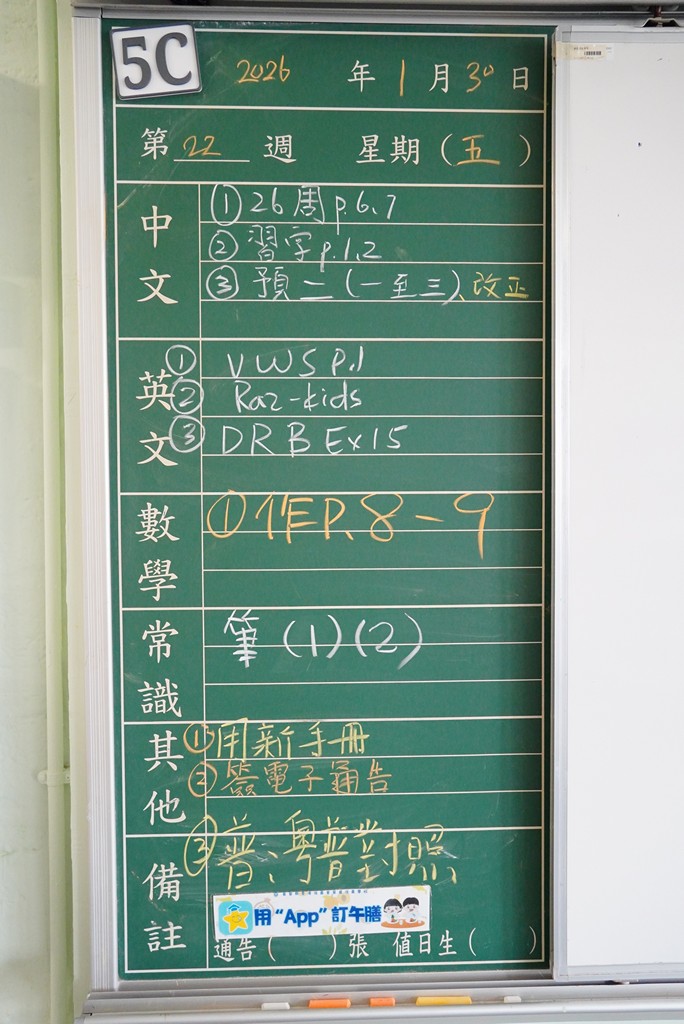 5C
2026 年 1 月 30 日
第 22 週 星期 (五)
中文
① 26周 p.6,7
② 習字 p.1,2
③ 預二 (一至三)、改正
英文
① VWS P.1
② Raz-kids
③ DRB Ex15
數學
① 作P.8-9
常識
筆 (1)(2)
其他
① 用新手冊
② 簽電子通告
③ 普、粵普對照
備註
用“App”訂午膳
通告( )張 值日生( )